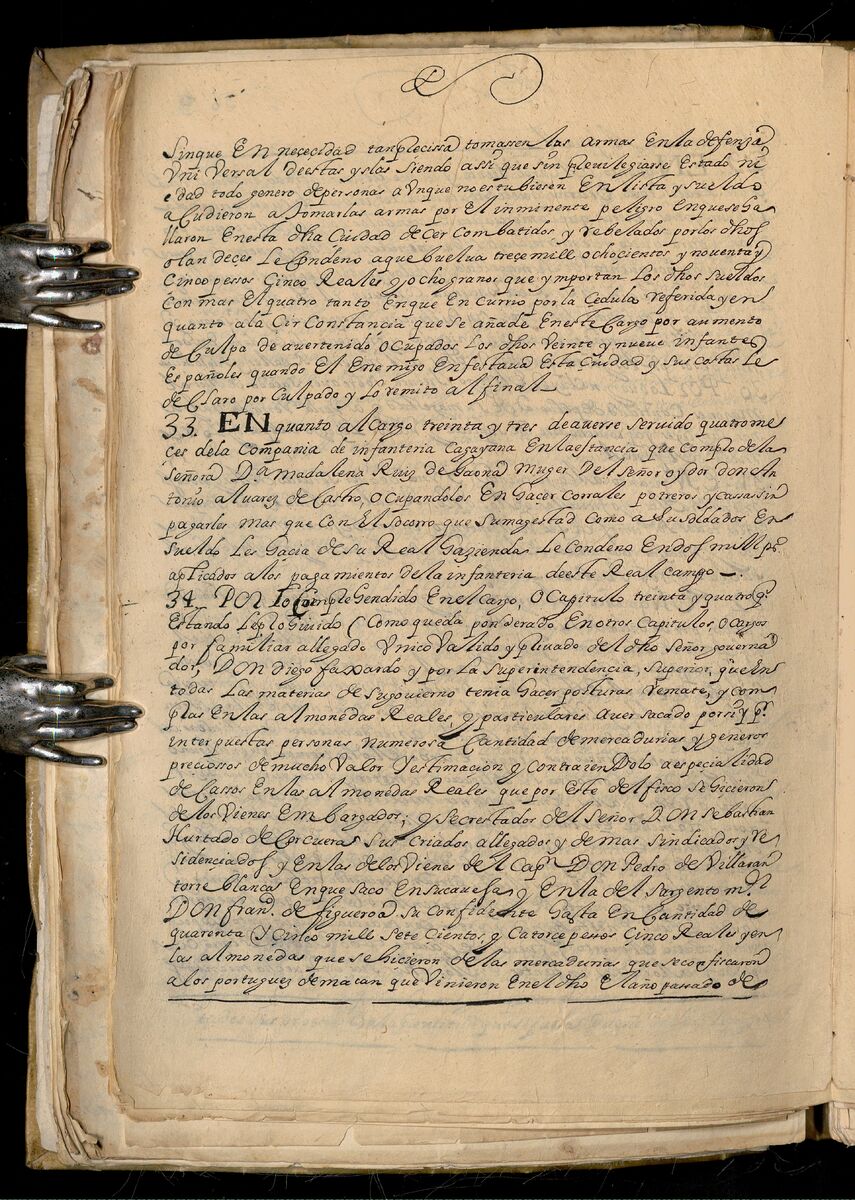 sin que En neçecidad tan plecissa tomassen las armas En la defensa
Vni Versal de estas yslas siendo assi que sin plevilegiarse Estado ni
edad todo genero de personas a Vnque no estubiesen En lista y sueldo
a Cudieron a tomar las armas por El inminente peligro En que se ha
llaron En esta dha Ciudad de cer combatidos y rebelados por los dhos
olandeces Le Condeno a que buelua treçe mill ochocientos y noventa y
Cinco pessos Çinco Reales y ocho granos que ymportan Los dhos sueldos
Con mas El quatro tanto En que En currio por la Cedula referida y en
quanto a la CirConstançia que se añade En este Cargo por aumento
de Culpa de aver tenido ocupados Los dhos Veinte y nueve infantes
Españoles quando El Enemigo Enfestaua Esta Ciudad y sus costas Le
de Claro por Culpado y Lo remito al final
33. EN quanto al cargo treinta y tres de averse servido quatro me
ces de la Compania de infanteria Cagayana En la estancia que Complo de la
señora Da Madalena Ruiz de Gaona Muger Del señor oydor don An
tonio aluarez de Castro, ocupandolos En haçer Corrales potreros y cassa sin
pagarles mas que con El socorro que su magestad como a su soldados En
sueldo Les hacia de su Real hazienda Le condeno En dos mill ps
aplicados a los pagamientos de la infanteria de este Real campo
34. POR Lo ComplehenDido En el Cargo, o Capitulo treinta y quatro q
Estando le plohivido (Como queda ponderado En otros Capitulos, o Cargos
por familiar allegado Vnico Valido y plivado del dho señor governa
dor, DON Diego faxardo y por la superintendencia, superior, que En
todas Las materias de su govierno tenia haçer posturas remate, y com
plas En las almonedas Reales, y particulares aver sacado por si y pr
interpuestas personas numerosa Cantidad de mercadurias y generos
preciossos de mucho Valor Y estimacion y contraienDolo a especialidad
de Cassos En las almonedas Reales que por Este delfico se hicieron
de los Vienes Embargados; y secrestados del señor DON Sebastian
Hurtado de Corcuera sus criados allegados y demas sindicados y re
sidenciados y En las de los Vienes del Capn DON Pedro de Villaran
torreblancas En que saco En su caveza, y En la del sargento mor
DON fran.co de figueroa su confidente hasta En Cantidad de
quarenta Y Cinco mill sete Cientos y Catorce pesos Çinco Reales y en
las almonedas que se hicieron de las mercadurias que se confiscaron
a los portuguez de macan que Vinieron En el dho El año passado de